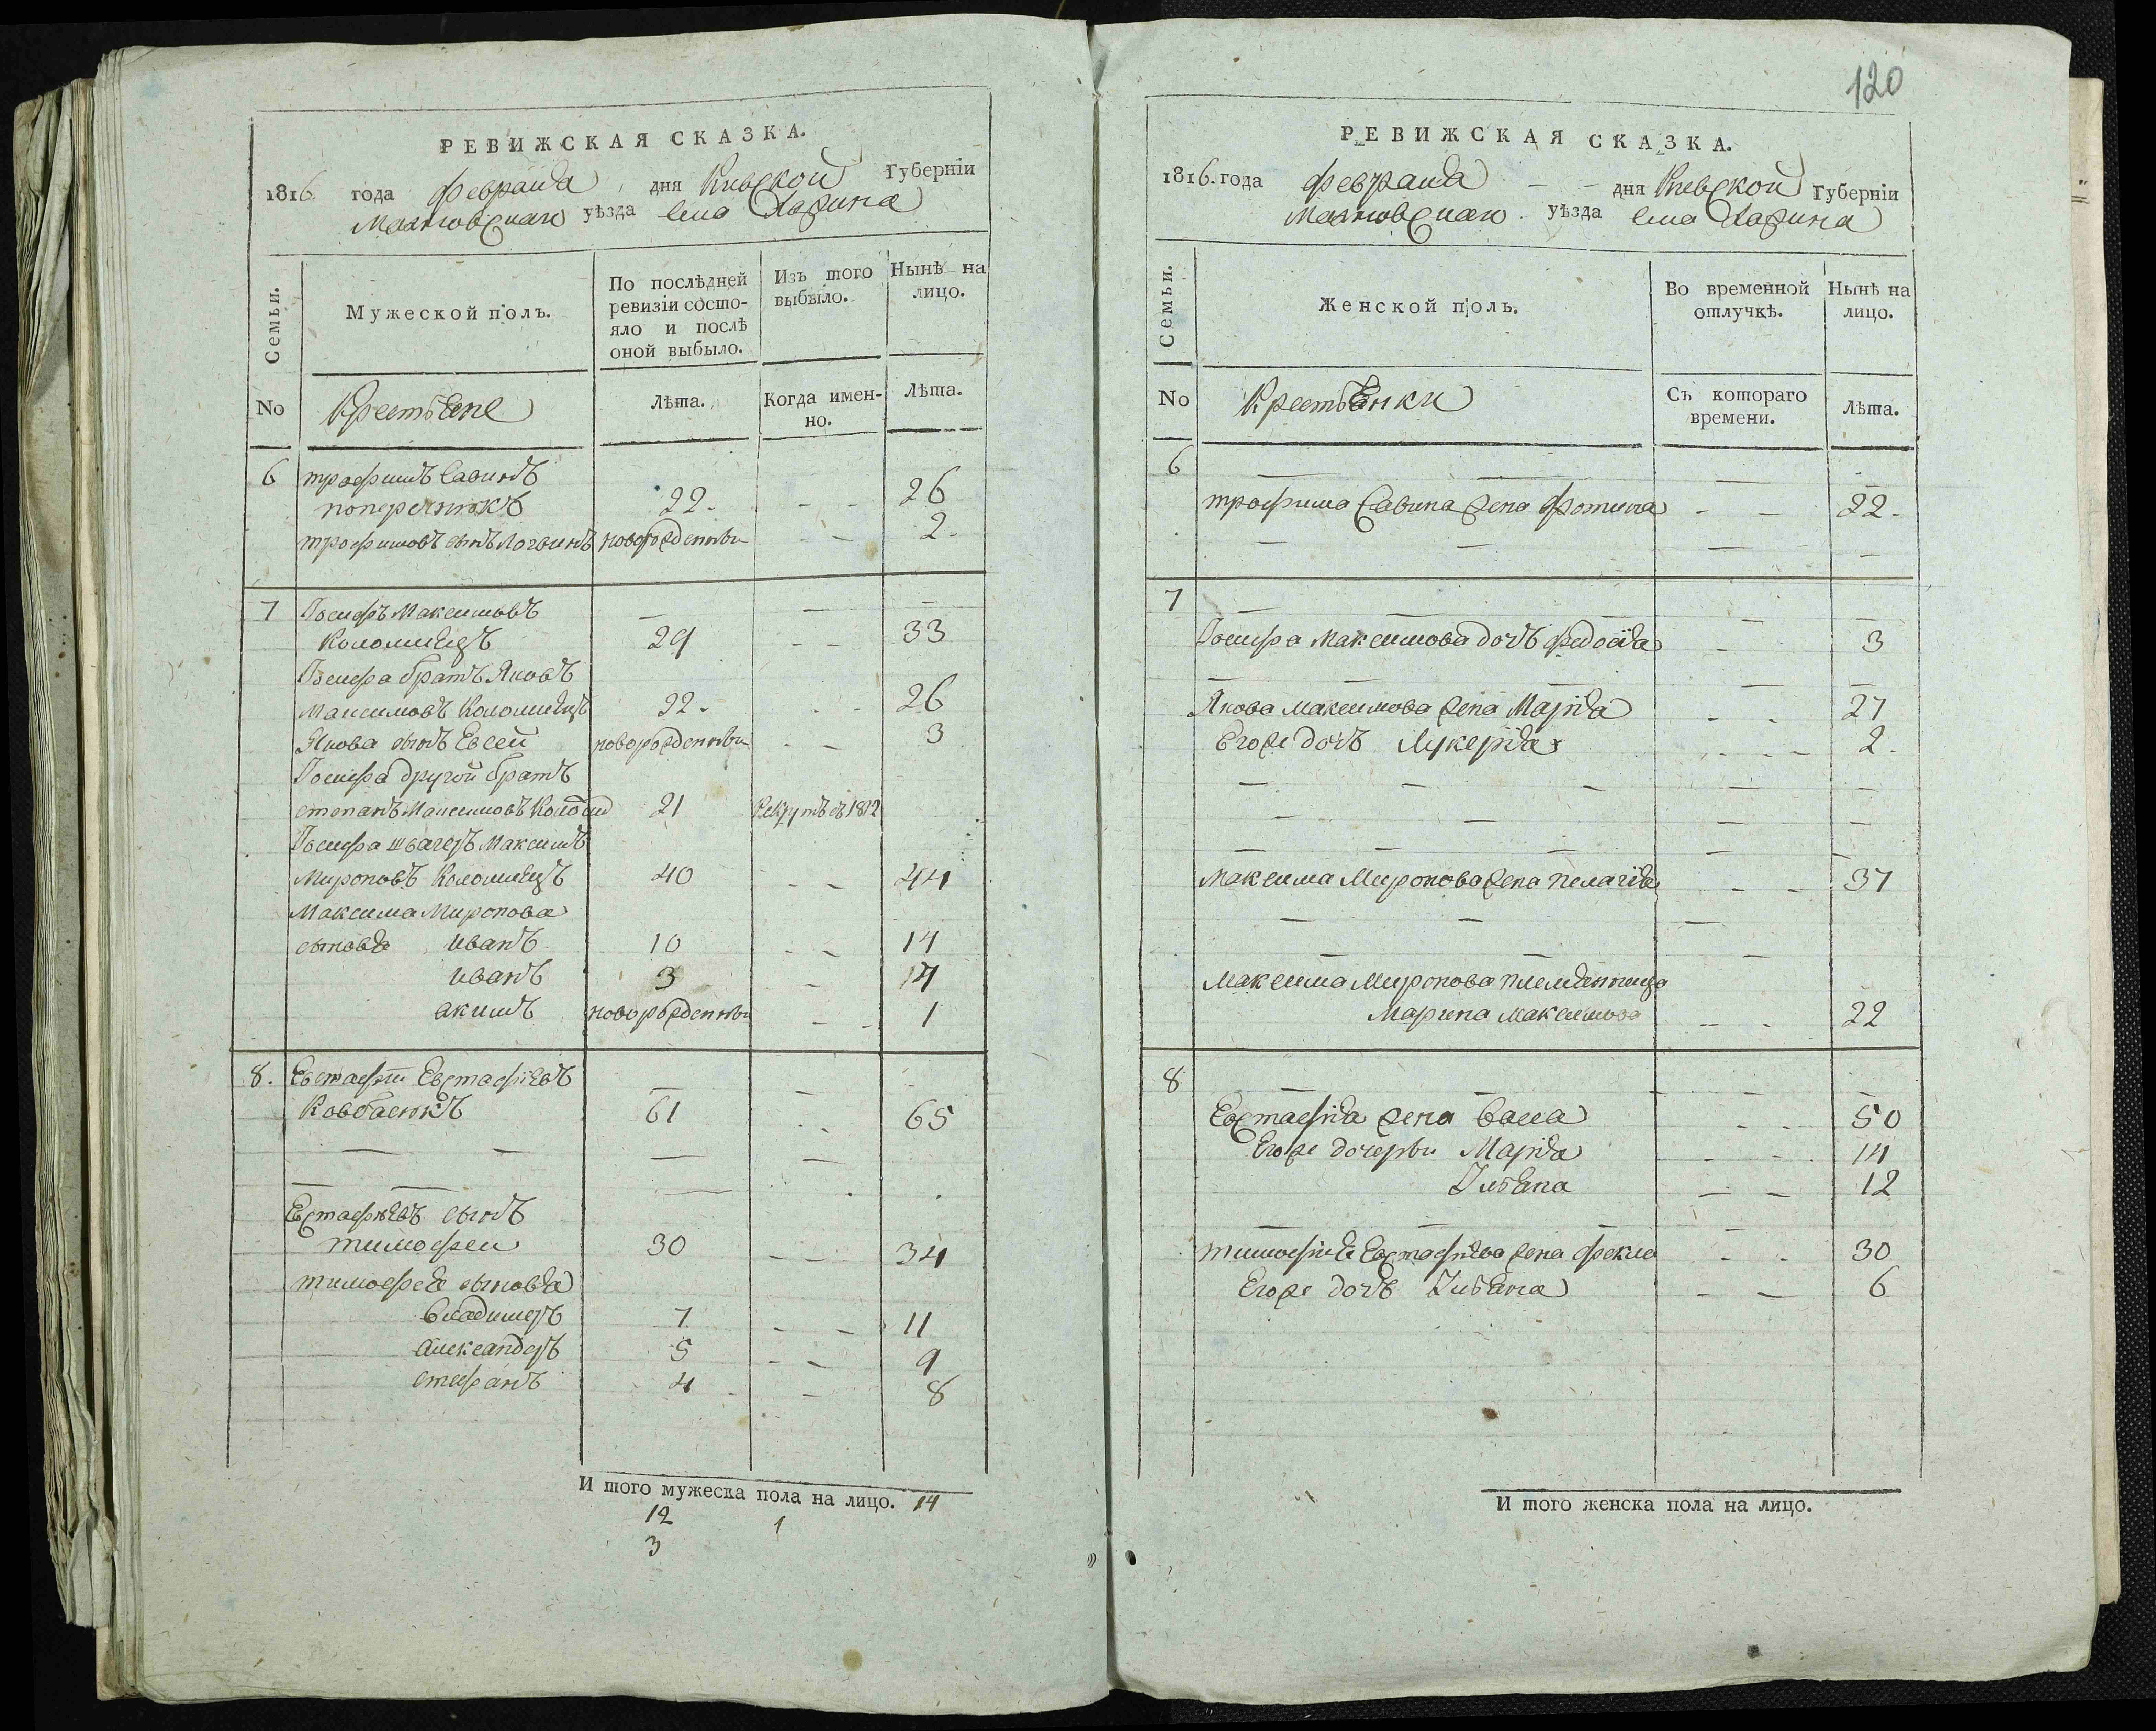 РЕВИЖСКАЯ СКАЗКА.
1816 года февраля дня Киевской Губерніи
Махновскаго уѣзда села
Семьи.
Мужеской полъ.
По послѣдней ревизіи состо-
яло и послѣ
оной выбыло.
Изъ того
выбыло.
Нынѣ на
лицо.
No
Крестьяне
Лѣта.
Когда имен-
но.
Лѣта.
6 трофимъ Савинъ
поперечнюкъ 22. - - 26
трофимовъ сынъ Логвинъ новорожденны - - 2.
7 Іосифъ Максимовъ — — —
Коломиецъ 29 - - 33
Іосифа братъ Яковъ
Максимовъ Коломиецъ 22. - - 26
Якова сынъ Евсей новорожденны - - 3
Іосифа другой братъ
степанъ Максимовъ 21 Рекрутъ съ 1812
Іосифа швагеръ Максимъ
Мироновъ Коломиецъ 40 - - 44
Максима Миронова
сыновья иванъ 10 - - 14
иванъ 3 - 14
акимъ новорожденны - - 1
8. Евстафій Евстафіевъ — — -
Ковбаснюкъ 61 - - 65
— — — —
— — — - -
Евстафіевъ сынъ
тимофей 30 - - 34
тимофея сыновья
Владимеръ 7 - - 11
Александеръ 5 - - 9
стефанъ 4 - - 8
И того мужеска пола на лицо. 14
12 1
3
120
РЕВИЖСКАЯ СКАЗКА.
1816. года февраля - - дня Киевской Губерніи
Махновскаго уѣзда села
Семьи.
Женской полъ.
Во временной
отлучкѣ.
Нынѣ на
лицо.
No
Крестьянки
Съ котораго
времени.
Лѣта.
6 — — — -
трофима Савина жена фотина - - 22.
— — — -
7 — — — —
Іосифа Максимова дочь федосія - 3
— — — —
Якова Максимова жена Марія - - 27
Егоже дочь Лукерія - - - 2.
— — — — —
— — — — —
— — — — —
Максима Миронова жена пелагія - - 37
— — —
— — — —
Максима Миронова племянница
Марина Максимова - - 22
8 — — — — —
Евстафія жена Васса - - 50
Егоже дочери Марія - - 14
Ульяна — — 12
— — — —
тимофія Евстафіева жена фекла - - 30
Егоже дочь Ульяна - — 6
И того женска пола на лицо.